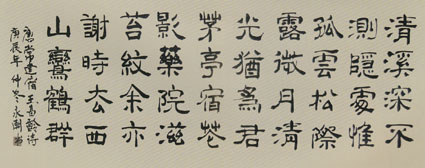 清溪深不
測隱處惟
孤雲松際
露微月清
光猶為君
茅亭宿花
影藥院滋
苔紋余亦
謝時去西
山鸞鶴群
唐常建宿王昌齡詩
庚辰年仲冬永